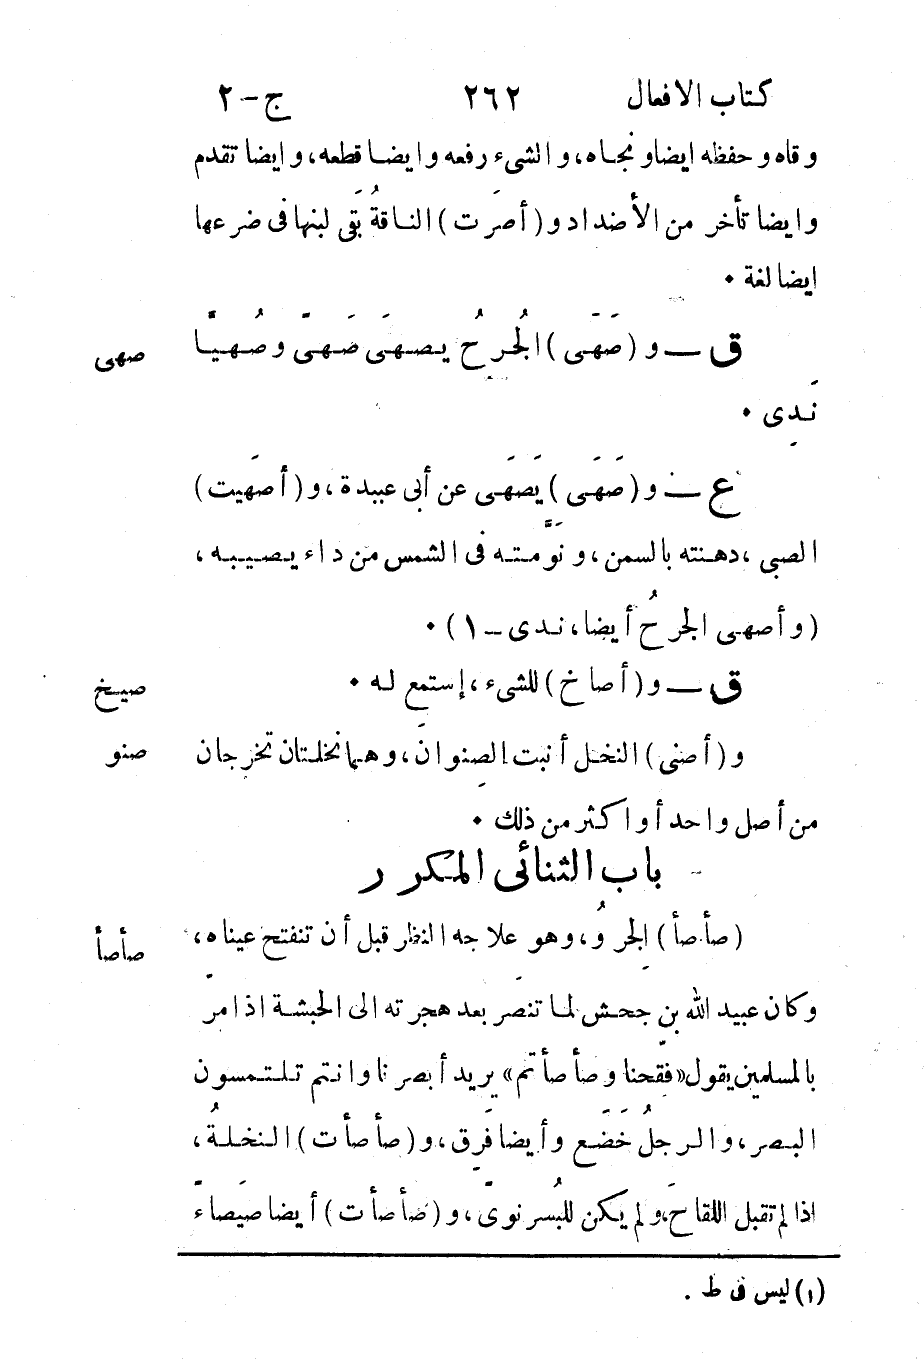 كتاب الافعال ٢٦٢ ج-٢
وقاه وحفظه ايضا ونجاه، والشىء رفعه وايضا قطعه، وايضا تقدم
وايضا تأخر من الأضداد و(أصَرت) الناقةُ بَقى لبنها فى ضرعها
ايضا لغة ٠
ق ــ و (صَهَى) الجُرحُ يصهَى صَهىً وصُهيًّا
صهى
نَدِى ٠
ع ــ و (صَهَى) يَصَهَى عن أبى عبيدة، و (أصهَيت)
الصبى، دهنته بالسمن، ونوَّمته فى الشمس من داء يصيبه،
(وأصهى الجرحُ أيضا، ندى ــ ١) ٠
ق ــ و (أصاخ) للشىء، إستمع له ٠
صيخ
و (أصنى) النخل أنبت الصِنوانَ، وهما نخلتان تخرجان
صنو
من أصل واحد أو اكثر من ذلك ٠
باب الثنائى المكرر
(صأصأ) الجِروُ، وهو علاجه النظر قبل أن تنفتح عيناه،
صأصأ
وكان عبيد الله بن جحش لما تنصَّر بعد هجرته الى الحبشة اذا مرّ
بالمسلمين يقول «فقّحنا وصأصأتم» يريد أبصرنا وانتم تلتمسون
البصر، والرجلُ خَضَع وأيضا فَرِق، و (صأصأت) النخلةُ،
اذا لم تقبل اللقاح، ولم يكن للبُسر نوىً، و (صَأصأت) أيضا صِيصاءً
(١) ليس فى ط .